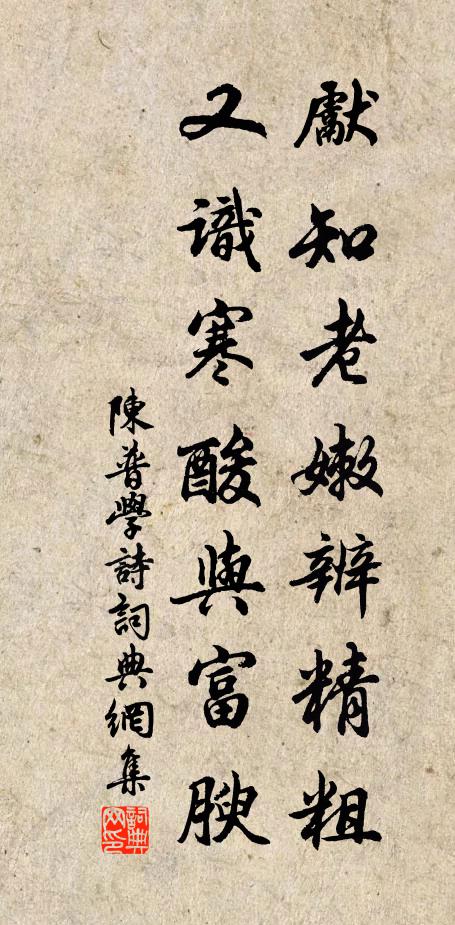 獻知老嫩辨精粗
又識寒酸與富腴
陳普學詩詞典網集
詞典网印